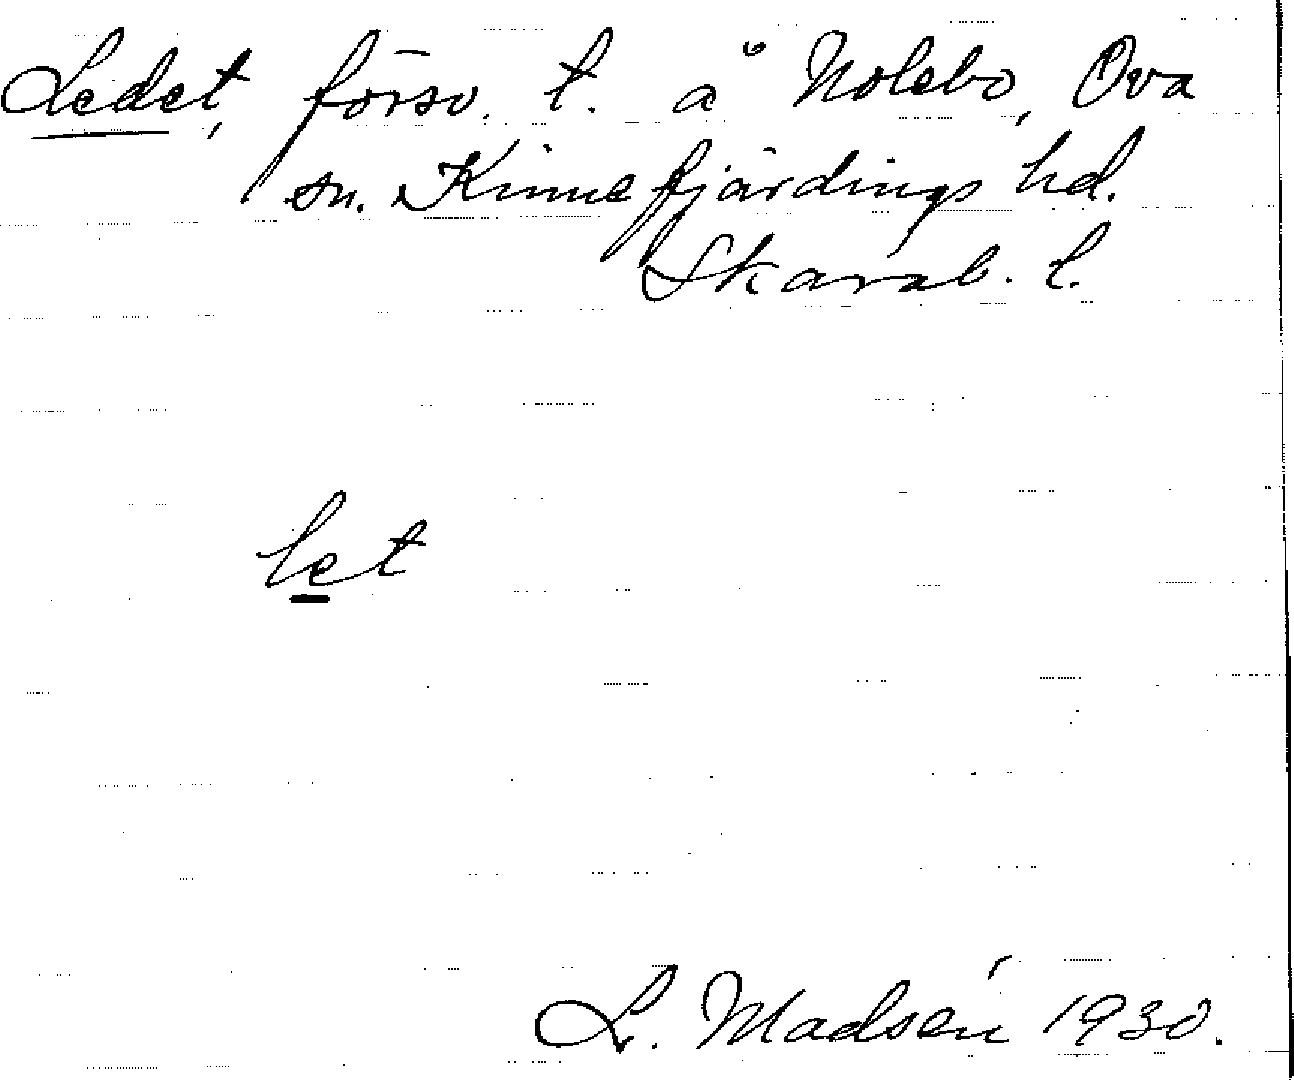 Ledet, försv. t. å Nolebo, Ova
sn. Kinnefjärdings hd.
Skarab. l.
let
L. Madsén 1930.